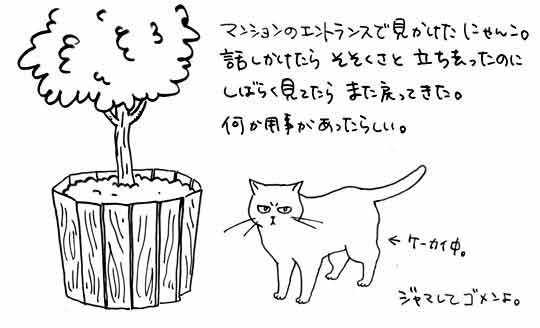 マンションのエントランスで見かけたにゃんこ。
話しかけたら そそくさと 立ち去ったのに
しばらく見てたら また戻ってきた。
何か用事があったらしい。
← ケーカイ中。
ジャマしてゴメンよ。